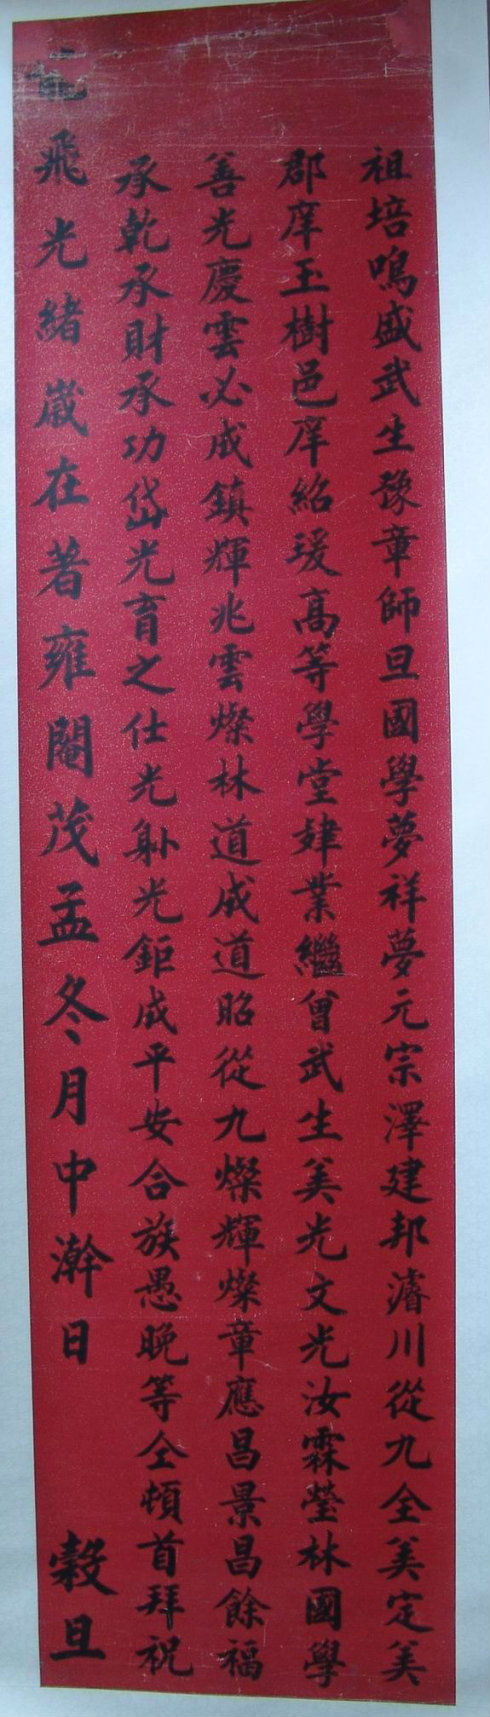 祖培鳴盛武生豫章師旦國學夢祥夢元宗澤建邦濬川從九全美定美
郡庠玉樹邑庠紹瑗高等學堂肄業繼曾武生美光文光汝霖瑩林國學
善光慶雲必成鎮輝兆雲燦林道成道昭從九燦輝燦章應昌景昌餘福
承乾承財承功岱光育之仕光射光鉅成平安合族愚晚等仝頓首拜祝
龍飛光緒嵗在著雍閹茂孟冬月中澣日 穀旦